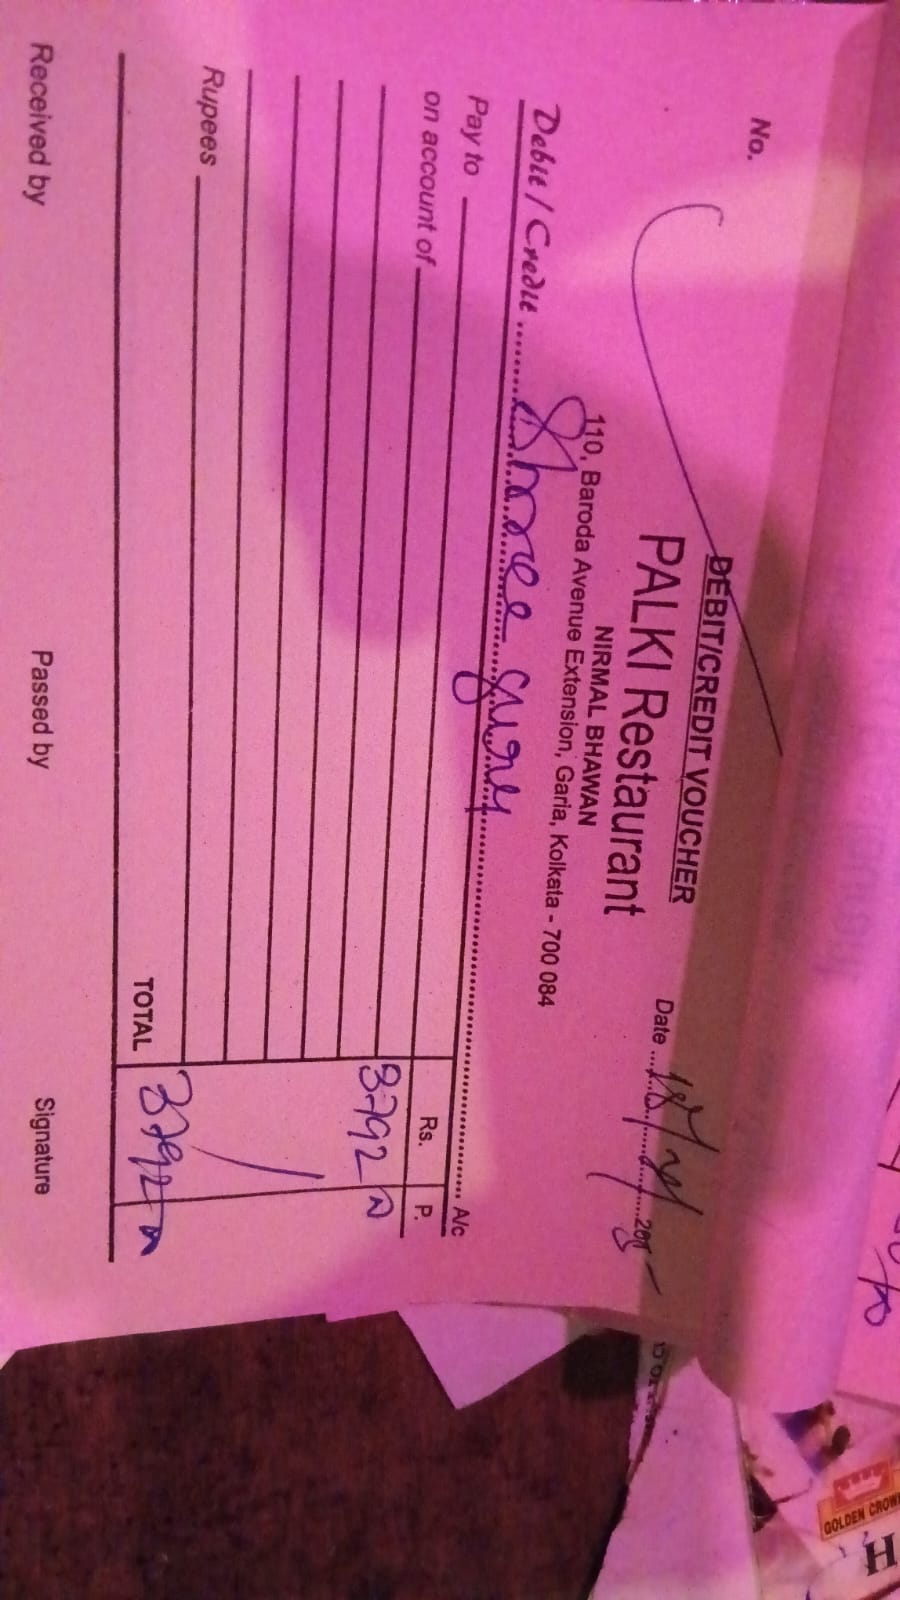 No.
DEBIT/CREDIT VOUCHER
PALKI Restaurant
NIRMAL BHAWAN
110, Baroda Avenue Extension, Garia, Kolkata - 700 084
Date
Debit / Credit Shree guru A/c
Pay to
on account of Rs. P.
3792
Rupees
TOTAL 3792
Received by Passed by Signature
GOLDEN CROWN
H